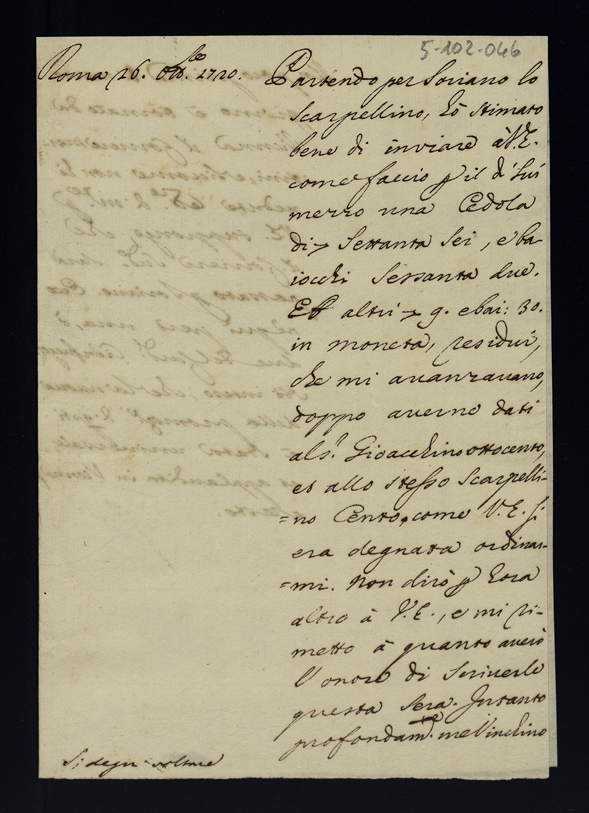 5-102-046
Roma 26. Ott.bre 1720.
Partendo per Soriano lo
Scarpellino, hò stimato
bene di inviare à V.E.
come faccio p il di lui
mezzo una Cedola
di Settanta sei, e ba
iocchi sessanta due.
Et altri 9. e bai: 30.
in moneta, residui,
che mi avanzavano,
doppo averne dati
al S.r Gioacchino ottocento,
et allo stesso Scarpelli-
=no Cento, come V.E. si
era degnata ordinar-
=mi. Non dirò p hora
altro à V.E., e mi ri-
metto à quanto averò
l'onore di scriverle
questa sera. Intanto
profondam.te me l'inchino
Si degni voltare